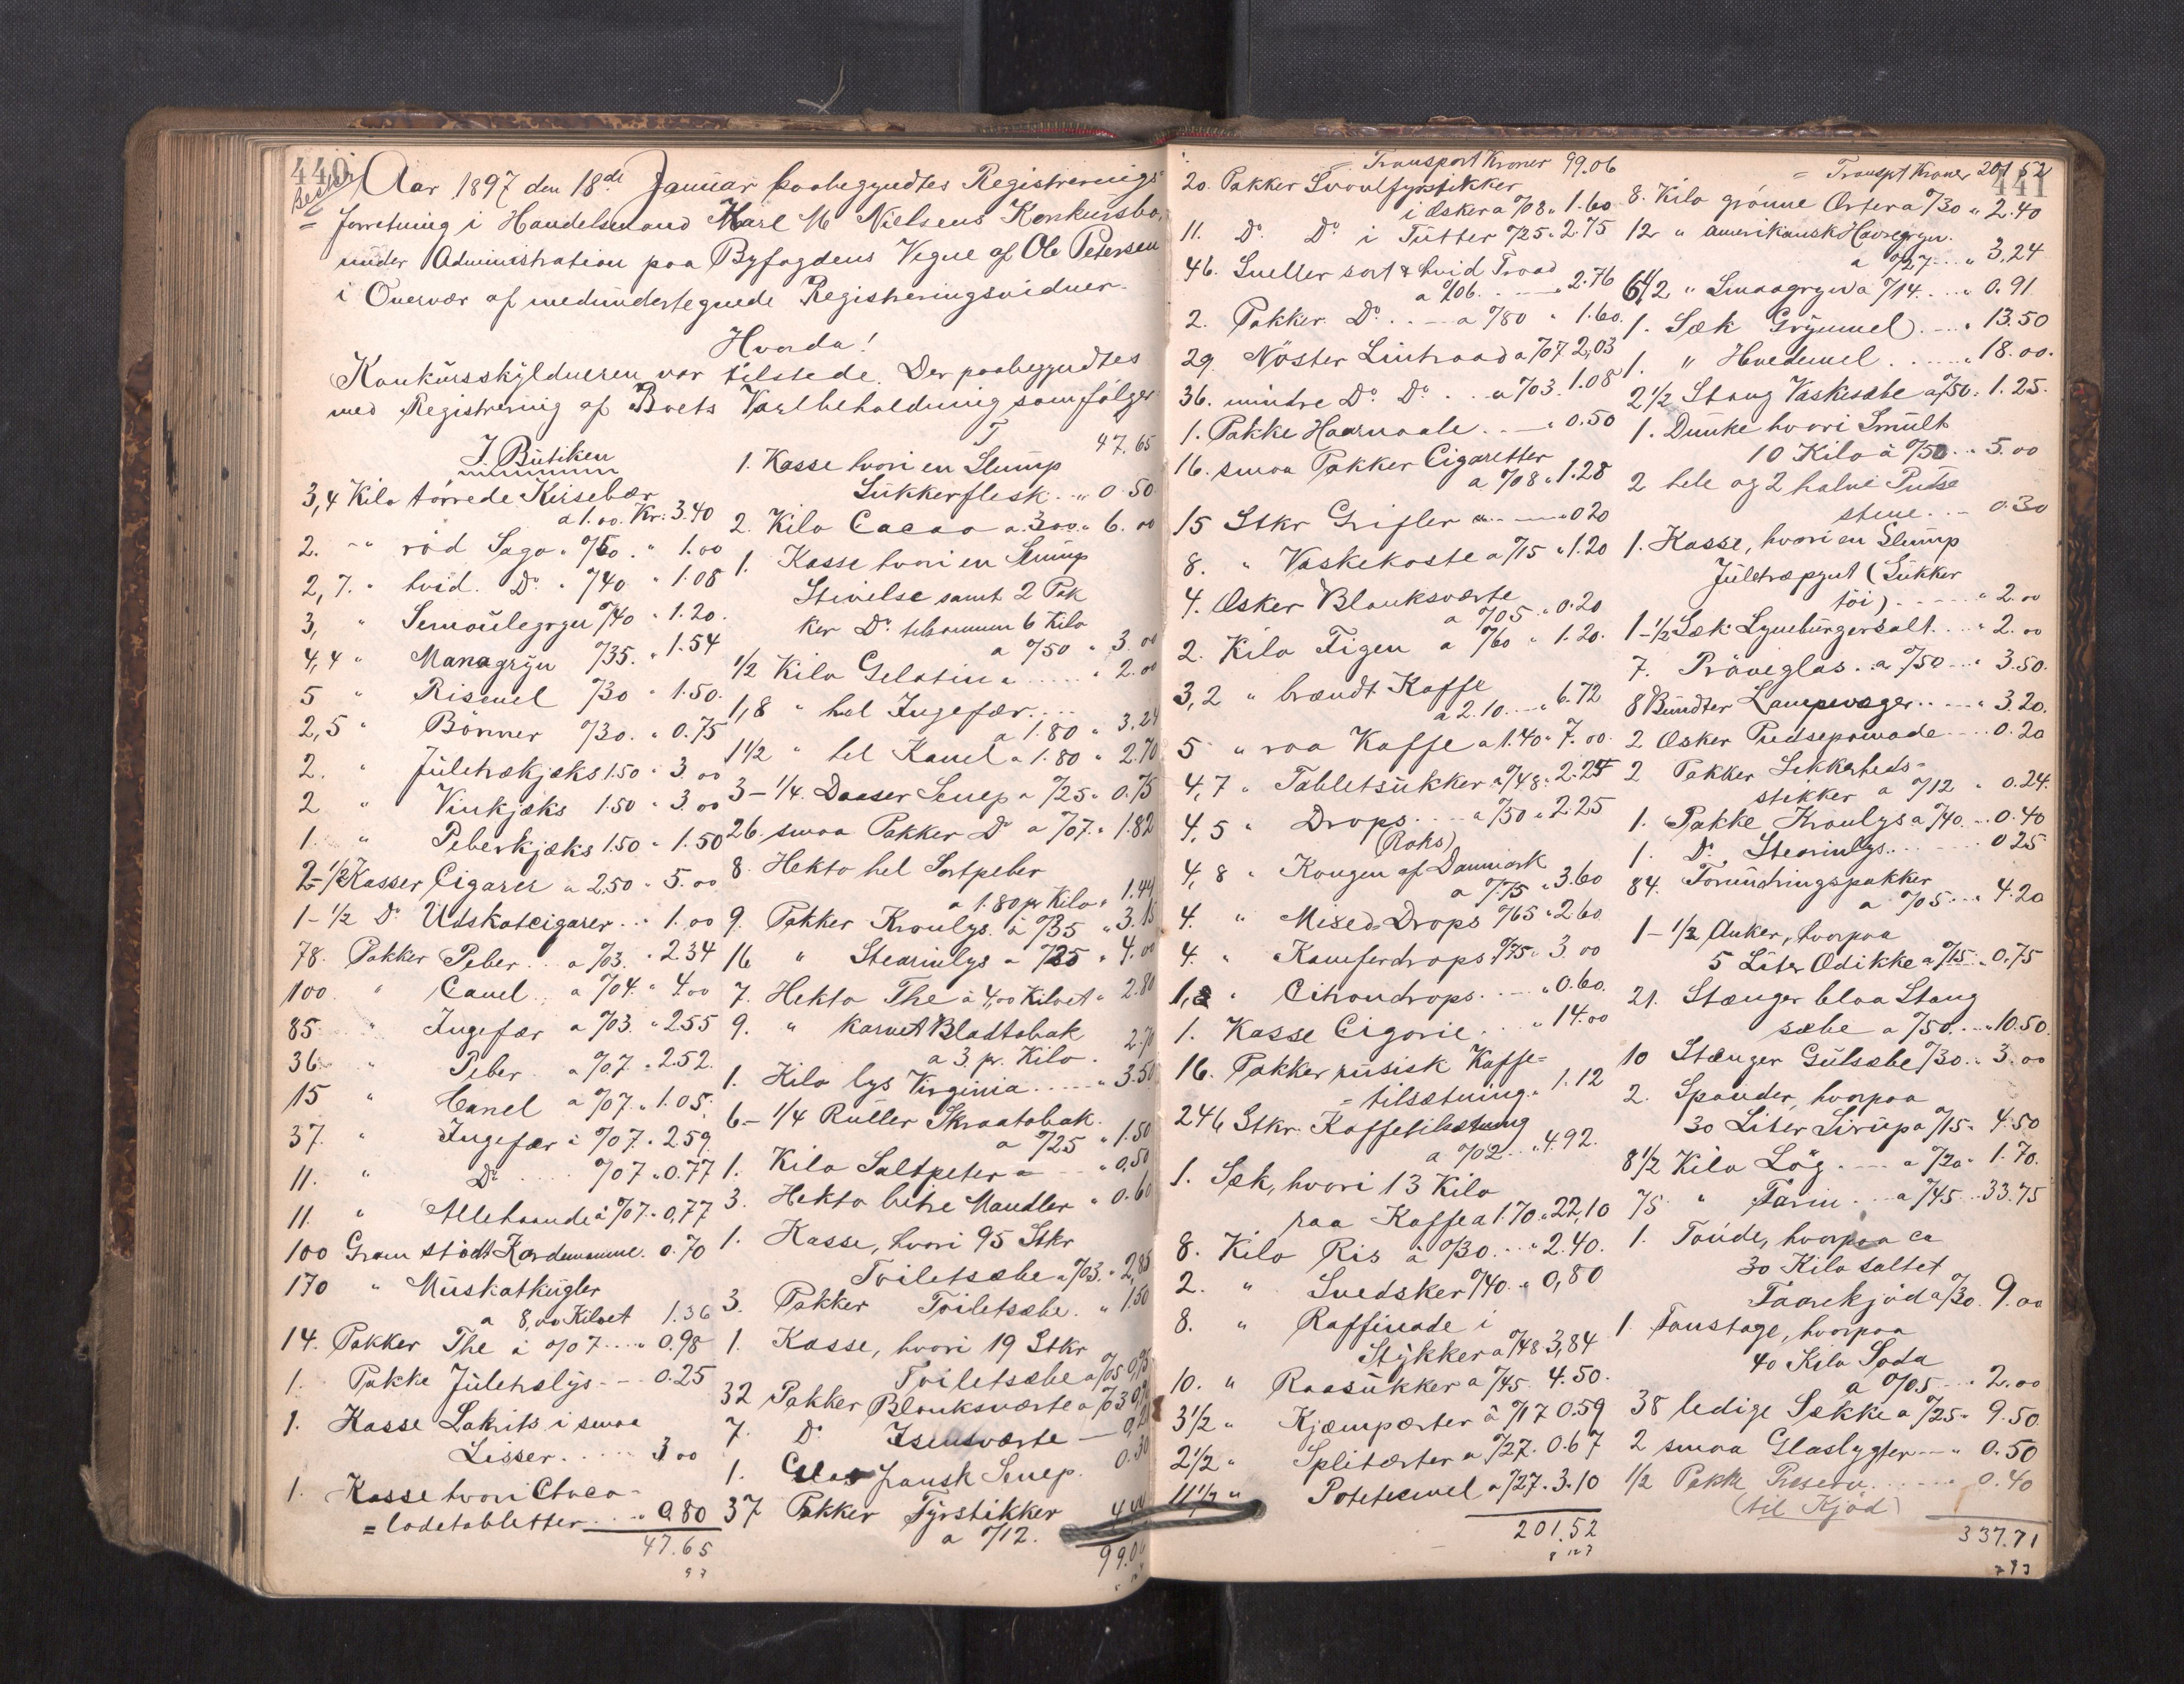 440
Aar 1897 den 18de Januar paabegyndtes Registrerings=
= forretning i Handelsmand Karl M Nielsens Konkursbo,
under Administration paa Byfogdens Vegne af Ole Petersen
i Overvær af medundertegnede Registreringsvidner.
Hvorda!
Konkursskyldneren var tilstede. Der paabegyndtes
med Registrering af Boets Varebeholdning som følger
I. Butiken
3,4 Kilo tørrede Kirsebær
a 1.00. Kr. 3.40
2. " rød Sago " %50. " 1.00
2,7. " hvid. Do " %40 " 1.08
3, " Semoulegryn %40 " 1.20.
4,4 " Managryn %35. " 1.54
5 " Rismel %30 " 1.50.
2,5 " Bønner %30. " 0.75
2. " Juletrækjæks 1.50 " 3.00
2 " Vinkjæks 1.50 " 3.00
1. " Peberkjæks 1.50 " 1.50
2-1/2 Kasser Cigarer a 2.50 " 5.00
1-1/2 Do Udskotcigarer .. " 1.00
78. Pakker Peber .. a %03. " 2.34
100 " Canel .. a %04. " 4.00
85 " Ingefær a %03. " 2.55
36 " Peber a %07. " 2.52.
15 " Canel a %07. " 1.05.
37. " Ingefær a %07. " 2.59.
11. " Do .... %07 " 0.77
11. " Allehaande à %07. " 0,77
100 Gram stødt Kardemomme. 0.70
170 " Muskatkugler
a 8,00 Kiloet 1.36
14. Pakker The à %07 .... " 0.98
1. Pakke Juletrælys - - 0.25
1. Kasse Lakrits i smaa
Lisser. .... 3.00
1. Kasse hvori Choco-
= ladetabletter .. " 0.80
47.65
T 47.65
1. Kasse hvori en Slump
Sukkerflesk .. " 0.50
2. Kilo Cacao a 3.00. " 6.00
1. Kasse hvori en Slump
Stivelse samt 2 Pak
ker Do tilsammen 6 Kilo
a %50 " 3.00
1/2 Kilo Gelatin " .... " 2.00
1,8 " hel Ingefær....
a 1.80 " 3.24
1 1/2 " hel Kanel a 1.80 " 2.70
3-1/4. Daaser Senep a %25 " 0.75
26. smaa Pakker Do a %07. " 1.82
8. Hekto hel Sortpeber
a 1.80 pr Kilo " 1.44
9. Pakker Kronlys. à %35 " 3.15
16 " Stearinlys a %25 " 4.00
7. Hekto The à 4,00 Kiloet " 2.80
9. " karvet Bladtobak
a 3 pr. Kilo. 2.70
1. Kilo lys Virginia .... " 3.50
6-1/4 Ruller Skraatobak.
a %25 " 1.50
1. Kilo Saltpeter = - " 0,50
3. Hekto bitre Mandler " 0.60
1. Kasse, hvori 95 Stkr
Toiletsæbe a %03. " 2,85
3. Pakker Toiletsæbe. " 1.50
1. Kasse, hvori 19 Stkr
Toiletsæbe a %05 0,95
32 Pakker Blanksværte a %03
7. Do Isensværte —
1. Glas fransk Senep. 0.30
37 Pakker Fyrstikker
a %12.
99.06
441
= Transport Kroner 99.06
20. Pakker Svovlfyrstikker
i Æsker a %08 " 1.60
11. Do. Do. i Tutter %25 " 2.75
46. Sneller sort & hvid Traad
a %06. .. — " 2.76
2. Pakker. Do. .. — a %80 " 1.60.
29. Nøster Lintraad a %07. 2,03
36. mindre Do. Do. .. a %03. 1.08
1. Pakke Haarnaale. .. — " 0.50
16. smaa Pakker Cigaretter
a %08 " 1.28
15 Stkr Grifler a. .. — " 0.20
8. " Vaskekoste a %15 " 1.20
4. Æsker Blanksværte
a %05 " 0.20
2. Kilo Figen a %60 " 1.20.
3,2 " brændt Kaffe
a 2.10. .. " 6.72
5 " raa Kaffe a 1.40 " 7.00.
4,7 " Tabletsukker a %48. " 2.25
4,5 " Drops .... a %50 " 2.25
(Roks)
4,8 " Kongen af Danmark
a %75 " 3.60
4. " Mixed Drops %65 " 2.60.
4. " Kamferdrops %75 " 3.00
1,2 " Citrondrops. .. — " 0.60.
1. Kasse Cigorie. .. " 14.00
16. Pakker rusisk Kaffe=
= tilsætning. " 1.12
246 Stkr. Kaffetilsætning
a %02 .. " 4.92.
1. Sæk, hvori 13 Kilo
raa Kaffe a 1.70 " 22,10
8. Kilo Ris à %30. .. " 2.40.
2. " Svedsker %40. " 0,80
8. " Raffinade i
Stykker a %48 3,84
10. " Raasukker a %45. 4.50.
3 1/2 " Kjæmpærter à %17 0.59
2 1/2 " Splitærter a %27. 0.67
11 1/2 " Potetesmel a %27. 3.10
201.52
= Transpt Kroner 201 52
8. Kilo grønne Ærter a %30 " 2.40
12 " amerikansk Havregryn.
a %27 - " 3,24
6 1/2 " Smaagryn a %14. .. " 0.91
1. Sæk Grynmel). — " 13.50
1. " Hvedemel. .... " 18.00.
2 1/2 Stang Vaskesæbe a %50. 1.25.
1. Dunke hvori Smult
10 Kilo à %50. .. 5.00
2 hele og 2 halve Pudse
stene. .. - 0.30
1. Kasse, hvori en Slump
Juletræpynt (Sukker
tøi). - - - - " 2.00
1-1/2 Sæk Lyneburgersalt. .. " 2.00
7. Prøveglas. a %50 - - " 3.50.
8 Bundter Lampevæger .. — " 3.20.
2 Æsker Pudsepomade .. - 0.20
2 Pakker Sikkerheds-
stikker a %12 " 0.24.
1. Pakke Kronlys a %40. .. 0.40
1. Do. Stearinlys. .. .. 0 25
84. Forundringspakker
a %05 ... 4.20
1-1/2 Anker, hvorpaa
5 Liter Edikke a %15. " 0.75
21. Stænger blaa Stang
sæbe a %50. .. " 10.50.
10 Stænger Gulsæbe %30 .. " 3.00
2. Spander, hvorpaa
30 Liter Sirup a %15 " 4.50
8 1/2 Kilo Løg. — a %20 " 1.70.
75 " Farin. .. a %45. .. 33.75
1. Tønde, hvorpaa ca
30 Kilo saltet
Faarekjød a %30. 9.00
1. Fanstage, hvorpaa
40 Kilo Soda
a %05 - - 2.00
38 ledige Sække a %25 " 9.50.
2 smaa Glaslygter — " 0.50
1/2 Pakke Preserv. ... — 0.40
(til Kjød)
337.71